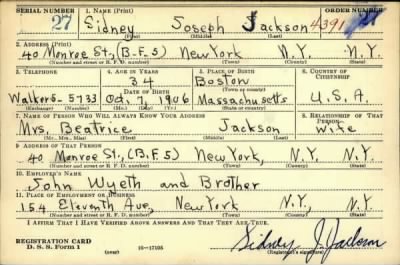 SERIAL NUMBER 1. NAME (Print) ORDER NUMBER
27 Sidney Joseph Jackson 4391 27
(First) (Middle) (Last)
2. ADDRESS (Print)
40 Monroe St., (B.F.5) New York N.Y. N.Y.
(Number and street or R. F. D. number) (Town) (County) (State)
3. TELEPHONE 4. AGE IN YEARS 5. PLACE OF BIRTH 6. COUNTRY OF CITIZENSHIP
34 Boston
DATE OF BIRTH (Town or county)
Walker5- 5733 Oct, 7 1906 Massachusetts U.S.A.
(Exchange) (Number) (Mo.) (Day) (Yr.) (State or country)
7. NAME OF PERSON WHO WILL ALWAYS KNOW YOUR ADDRESS 8. RELATIONSHIP OF THAT PERSON
Mrs. Beatrice Jackson Wife
(Mr., Mrs., Miss) (First) (Middle) (Last)
9. ADDRESS OF THAT PERSON
40 Monroe St., (B.F.5) New York, N.Y. N.Y.
(Number and street or R. F. D. number) (Town) (County) (State)
10. EMPLOYER'S NAME
John Wyeth and Brother
11. PLACE OF EMPLOYMENT OR BUSINESS
154 Eleventh Ave, New York N.Y. N.Y.
(Number and street or R. F. D. number) (Town) (County) (State)
I AFFIRM THAT I HAVE VERIFIED ABOVE ANSWERS AND THAT THEY ARE TRUE.
REGISTRATION CARD
D. S. S. FORM 1 16-17105 Sidney J. Jackson
(Registrant's signature)